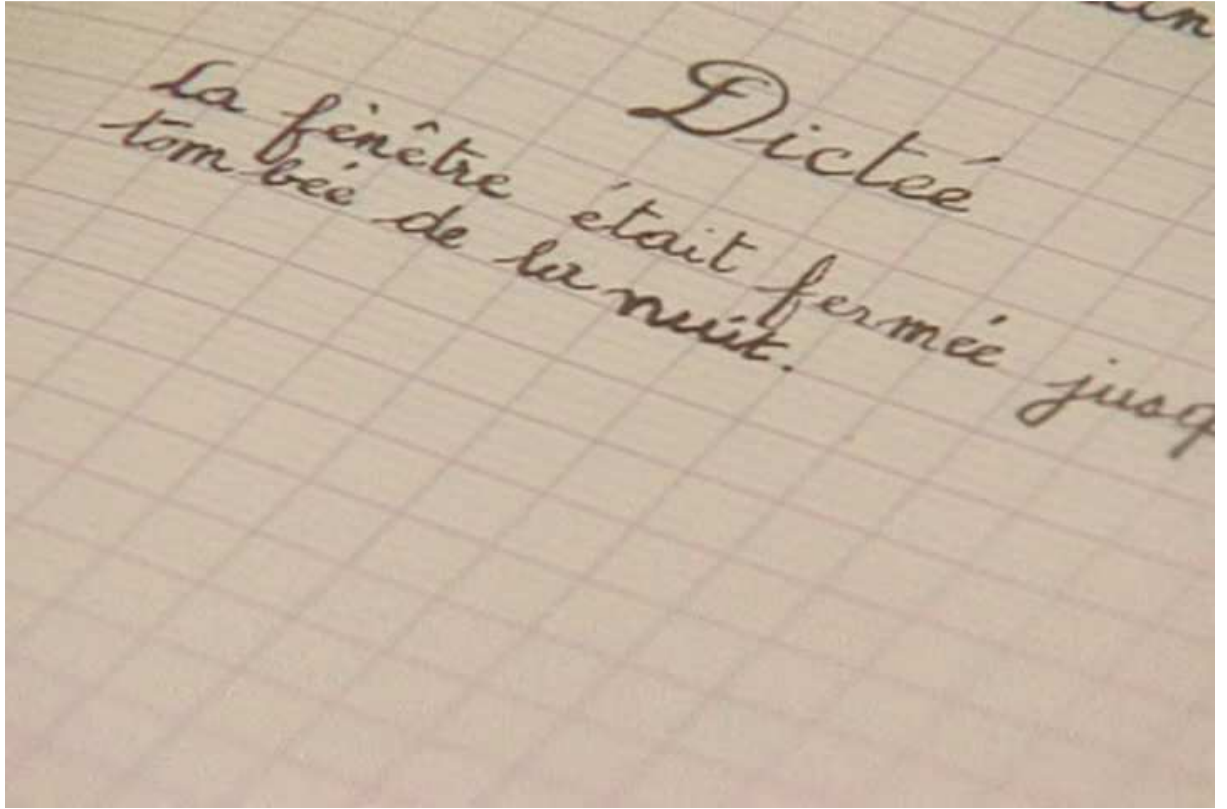 Dictée
La fenêtre était fermée jusq
tombée de la nuit.